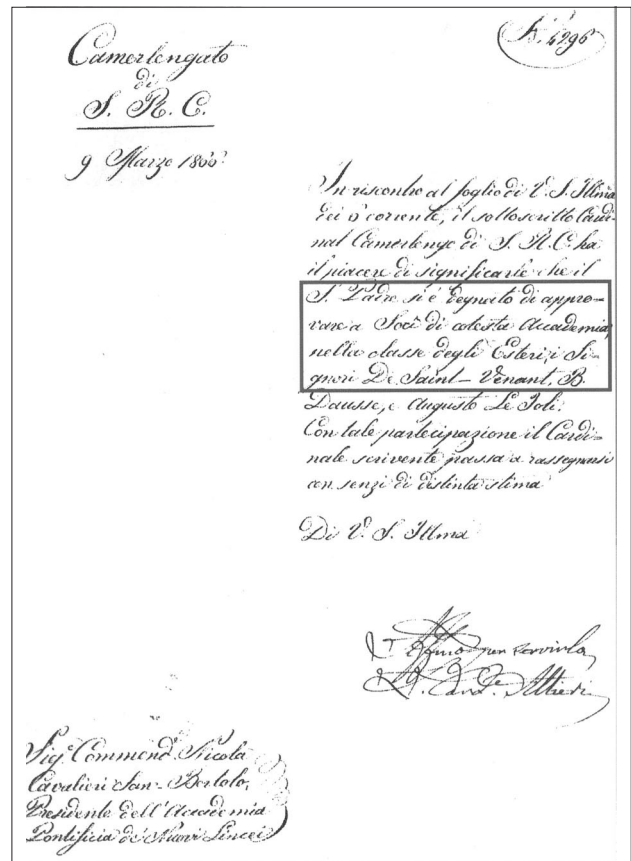 Camerlengato
di
S. R. C.
9 Marzo 1866.
N.° 4296
In riscontro al foglio di V. S. Illma
dei 5 corrente, il sottoscritto Cardi-
nal Camerlengo di S. R. C. ha
il piacere di significarle che il
S. Padre si è degnato di appro-
vare a Socî di cotesta Accademia,
nella classe degli Esteri, i Si-
gnori De Saint-Venant, B.
Dausse, e Augusto Le Joli.
Con tale partecipazione il Cardi-
nale scrivente passa a rassegnarsi
con sensi di distinta stima
Di V. S. Illma
per servirla
Card. Altieri
Sig.e Commend.e Nicola
Cavalieri San-Bertolo,
Presidente dell'Accademia
Pontificia de' Nuovi Lincei